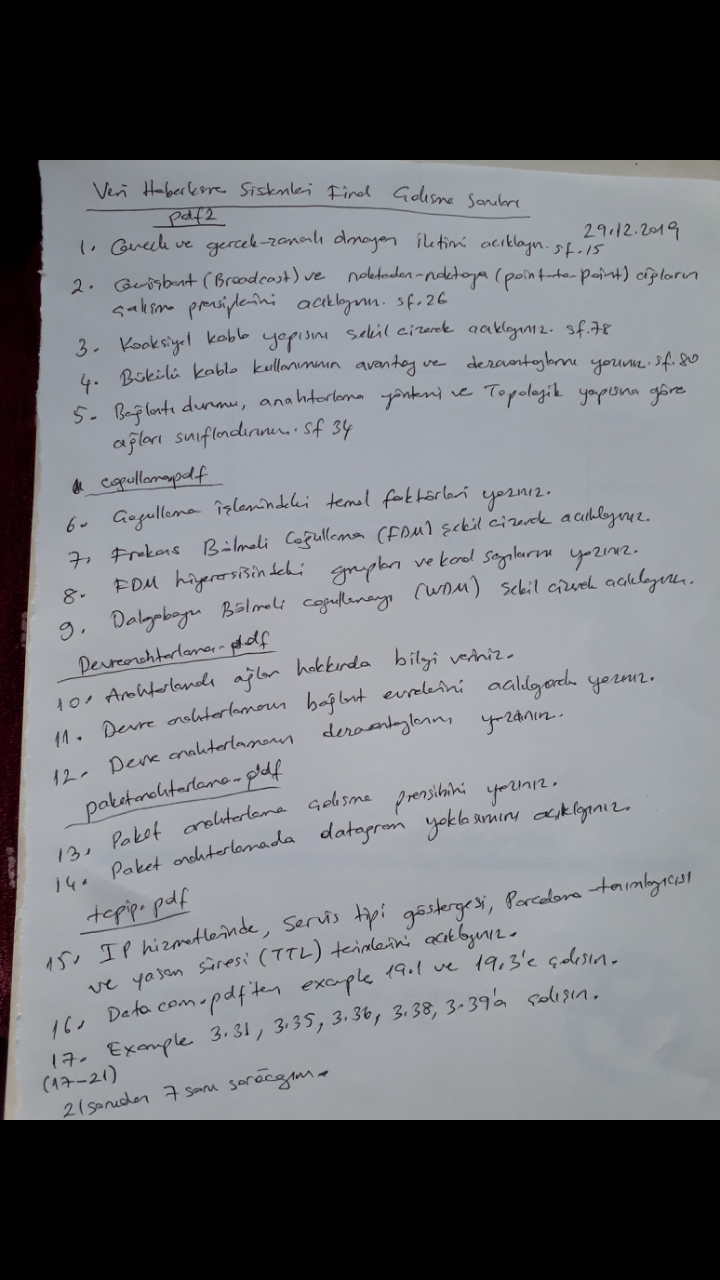 Veri Haberleşme Sistemleri Final Çalışma Soruları
pdf2
29.12.2019
1. ve gerçek-zamanlı olmayan iletimi açıklayın. sf.15
2. Genişbant (Broadcast) ve noktadan-noktaya (point-to-point) ağların
çalışma prensiplerini açıklayınız. sf.26
3. Koaksiyel kablo yapısını şekil çizerek açıklayınız. sf.78
4. Bükülü kablo kullanımının avantaj ve dezavantajlarını yazınız. sf.80
5. Bağlantı durumu, anahtarlama yöntemi ve Topolojik yapısına göre
ağları sınıflandırınız. sf 34
cogullama.pdf
6. Çoğullama işlemindeki temel faktörleri yazınız.
7. Frekans Bölmeli Çoğullama (FDM) şekil çizerek açıklayınız.
8. FDM hiyerarşisindeki grupları ve kanal sayılarını yazınız.
9. Dalgaboyu Bölmeli çoğullamayı (WDM) şekil çizerek açıklayınız.
Devreanahtarlama.pdf
10. Anahtarlamalı ağlar hakkında bilgi veriniz.
11. Devre anahtarlamanın bağlantı evrelerini açıklayarak yazınız.
12. Devre anahtarlamanın dezavantajlarını yazınız.
paketanahtarlama.pdf
13. Paket anahtarlama çalışma prensibini yazınız.
14. Paket anahtarlamada datagram yaklaşımını açıklayınız.
tcpip.pdf
15. IP hizmetlerinde, servis tipi göstergesi, Parçalama tanımlayıcısı
ve yaşam süresi (TTL) terimlerini açıklayınız.
16. Datacom.pdf'ten example 19.1 ve 19.3'e çalışın.
17. Example 3.31, 3.35, 3.36, 3.38, 3.39'a çalışın.
(17-21)
21 sorudan 7 soru soracağım.